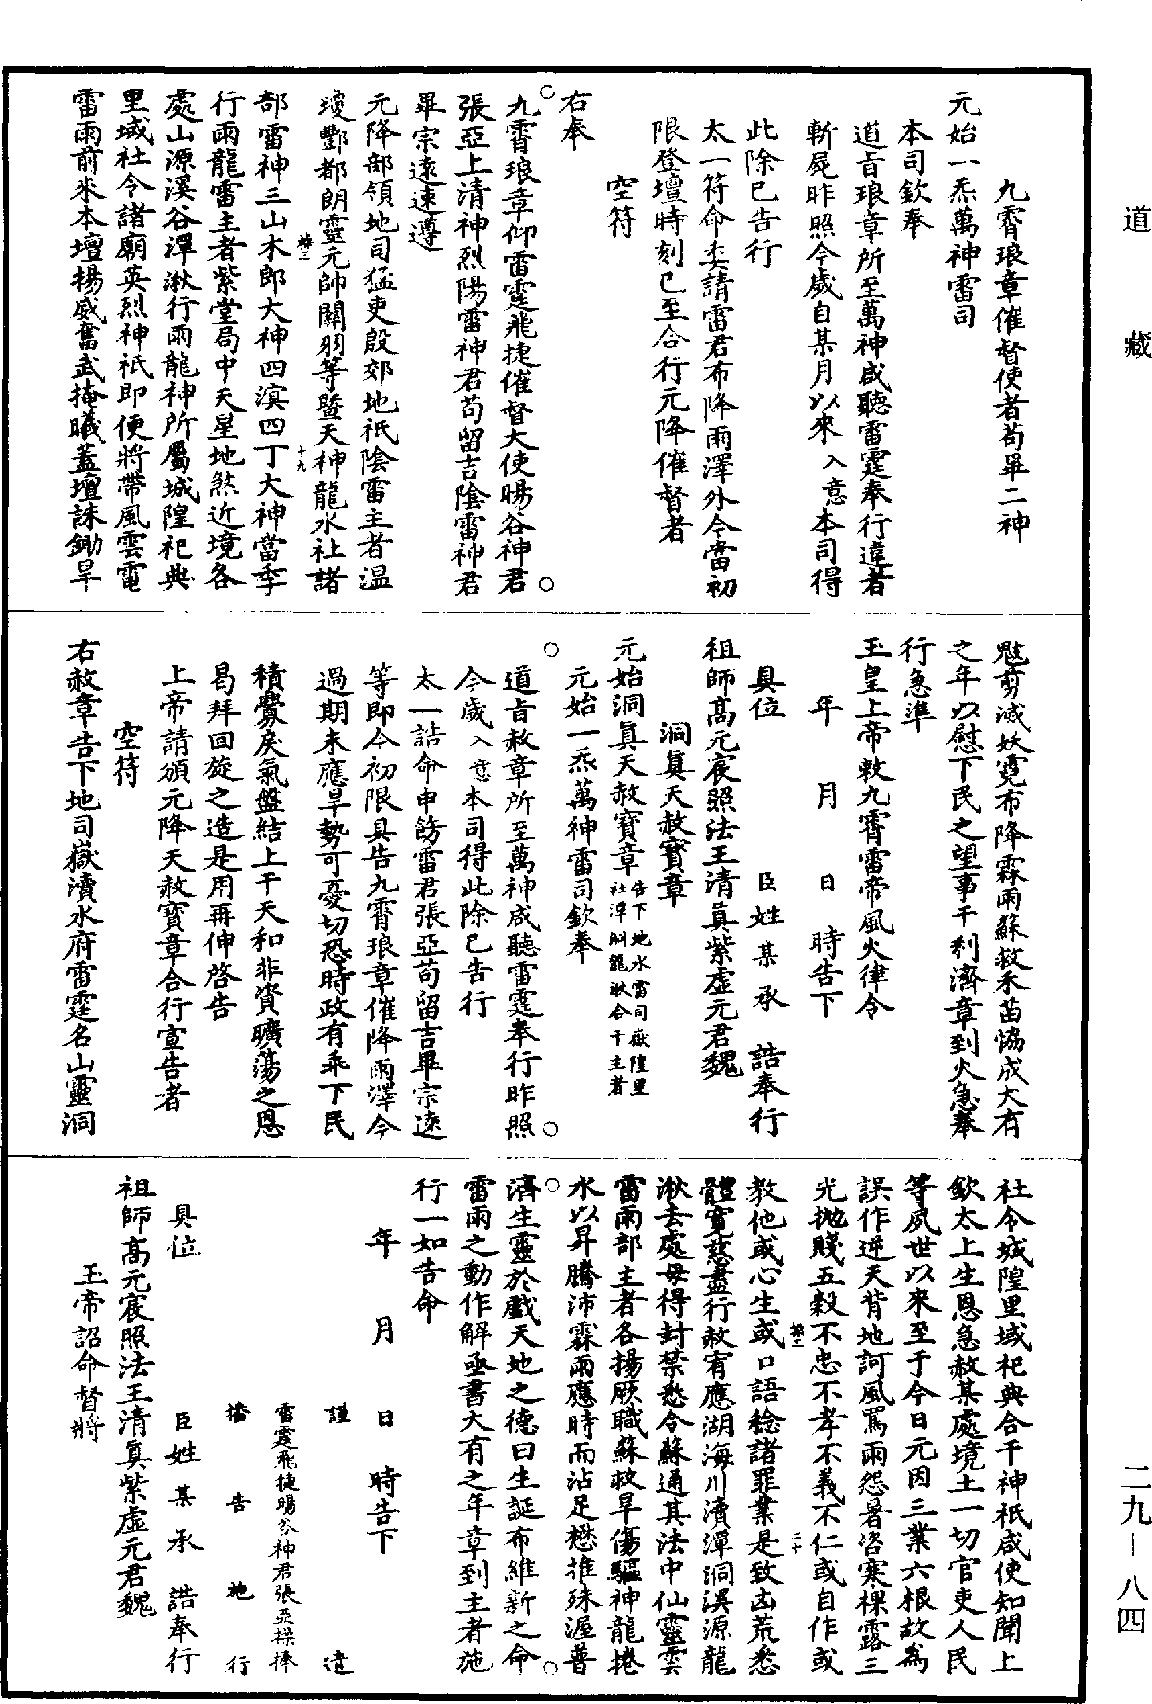 道藏
二九—八四
九霄琅章催督使者苟畢二神
元始一炁萬神雷司
本司欽奉
道旨琅章所至萬神咸聽雷霆奉行違者
斬屍昨照今歲自某月以來入意本司得
此除已告行
太一符命委請雷君布降雨澤外今當初
限登壇時刻已至合行元降催督者
空符
右奉
九霄琅章仰雷霆飛捷催督大使暘谷神君
張亞上清神烈陽雷神君苟留吉陰雷神君
畢宗遠速遵
元降部領地司猛吏殷郊地祇陰雷主者溫
瓊酆都朗靈元帥關羽等暨天神龍水社諸
部雷神三山木郎大神四溟四丁大神當季
行雨龍雷主者紫堂局中天星地煞近境各
處山源溪谷潭湫行雨龍神所屬城隍祀典
里域社令諸廟英烈神祇即便將帶風雲電
雷雨前來本壇揚威奮武掩曦蓋壇誅鋤旱
魃剪滅妖霓布降霖雨蘇救禾苗協成大有
之年以慰下民之望事干利濟章到火急奉
行急準
玉皇上帝敕九霄雷帝風火律令
年 月 日 時告下
具位 臣姓某承 誥奉行
祖師高元宸照法王清真紫虛元君魏
洞真天赦寶章
元始洞真天赦寶章告下地水雷司嶽隍里社潭洞龍湫合干主者
元始一炁萬神雷司欽奉
道旨赦章所至萬神咸聽雷霆奉行昨照
今歲入意本司得此除已告行
太一誥命申飭雷君張亞苟留吉畢宗遠
等即今初限具告九霄琅章催降雨澤今
過期未應旱勢可憂切恐時政有乖下民
積釁戾氣盤結上干天和非資曠蕩之恩
曷拜回旋之造是用再伸啓告
上帝請頒元降天赦寶章合行宣告者
空符
右赦章告下地司嶽瀆水府雷霆名山靈洞
社令城隍里域祀典合干神祇咸使知聞上
欽太上生恩急赦某處境土一切官吏人民
等夙世以來至于今日元因三業六根故為
誤作逆天背地訶風罵雨怨暑咨寒裸露三
光拋賤五穀不忠不孝不義不仁或自作或
教他或心生或口語稔諸罪業是致凶荒悉
體寬慈盡行赦宥應湖海川瀆潭洞溪源龍
湫去處毋得封禁愁令蘇通其法中仙靈雲
雷雨部主者各揚厥職蘇救旱傷驅神龍捲
水以昇騰沛霖雨應時而沾足懋推殊渥普
濟生靈於戲天地之德曰生誕布維新之命
雷雨之動作解亟書大有之年章到主者施
行一如告命
年 月 日 時告下
謹 遣
雷霆飛捷暘谷神君張亞操捧
播告施行
具位 臣姓某承 誥奉行
祖師高元宸照法王清真紫虛元君魏
玉帝詔命督將